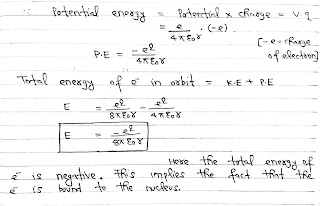 ∵ Potential energy = Potential × charge = V.q
= e/4πε₀r . (-e)
P.E = -e²/4πε₀r [-e = charge of electron]
Total energy of e⁻ in orbit = K.E + P.E
E = e²/8πε₀r - e²/4πε₀r
E = -e²/8πε₀r
Here the total energy of
e⁻ is negative. This implies the fact that the
e⁻ is bound to the nucleus.